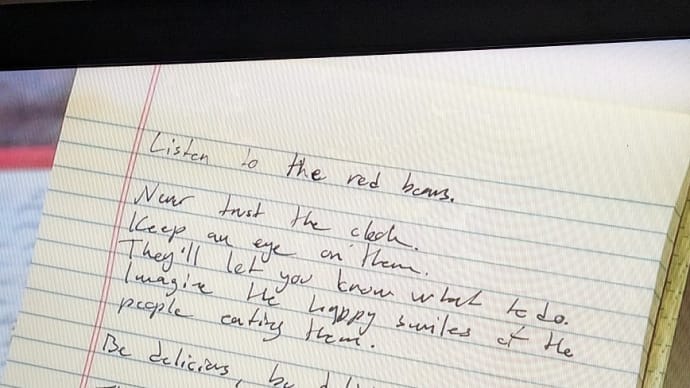 Listen to the red beans.
Never trust the clock.
Keep an eye on them.
They'll let you know what to do.
Imagine the happy smiles of the
people eating them.
Be delicious, be